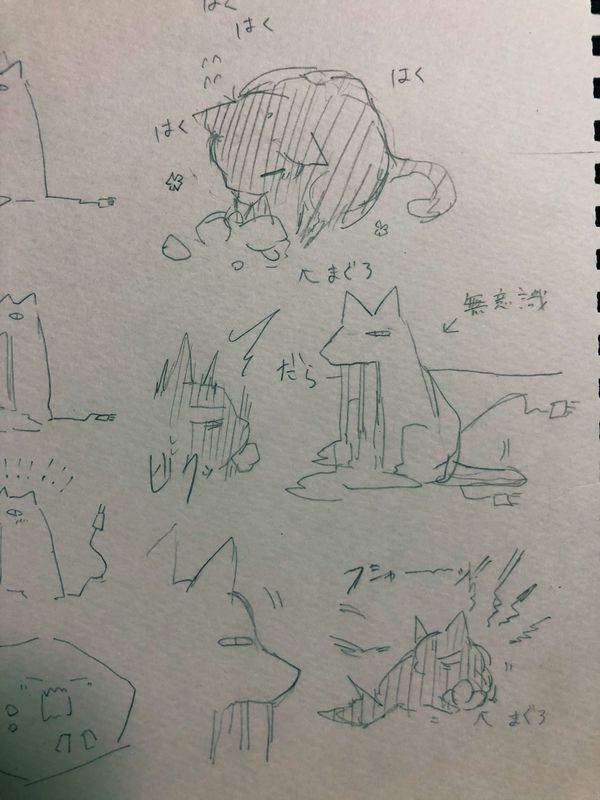 はく
はく
はく
はく
まぐろ
無意識
だら
ビクッ
フシャーーッ
まぐろ